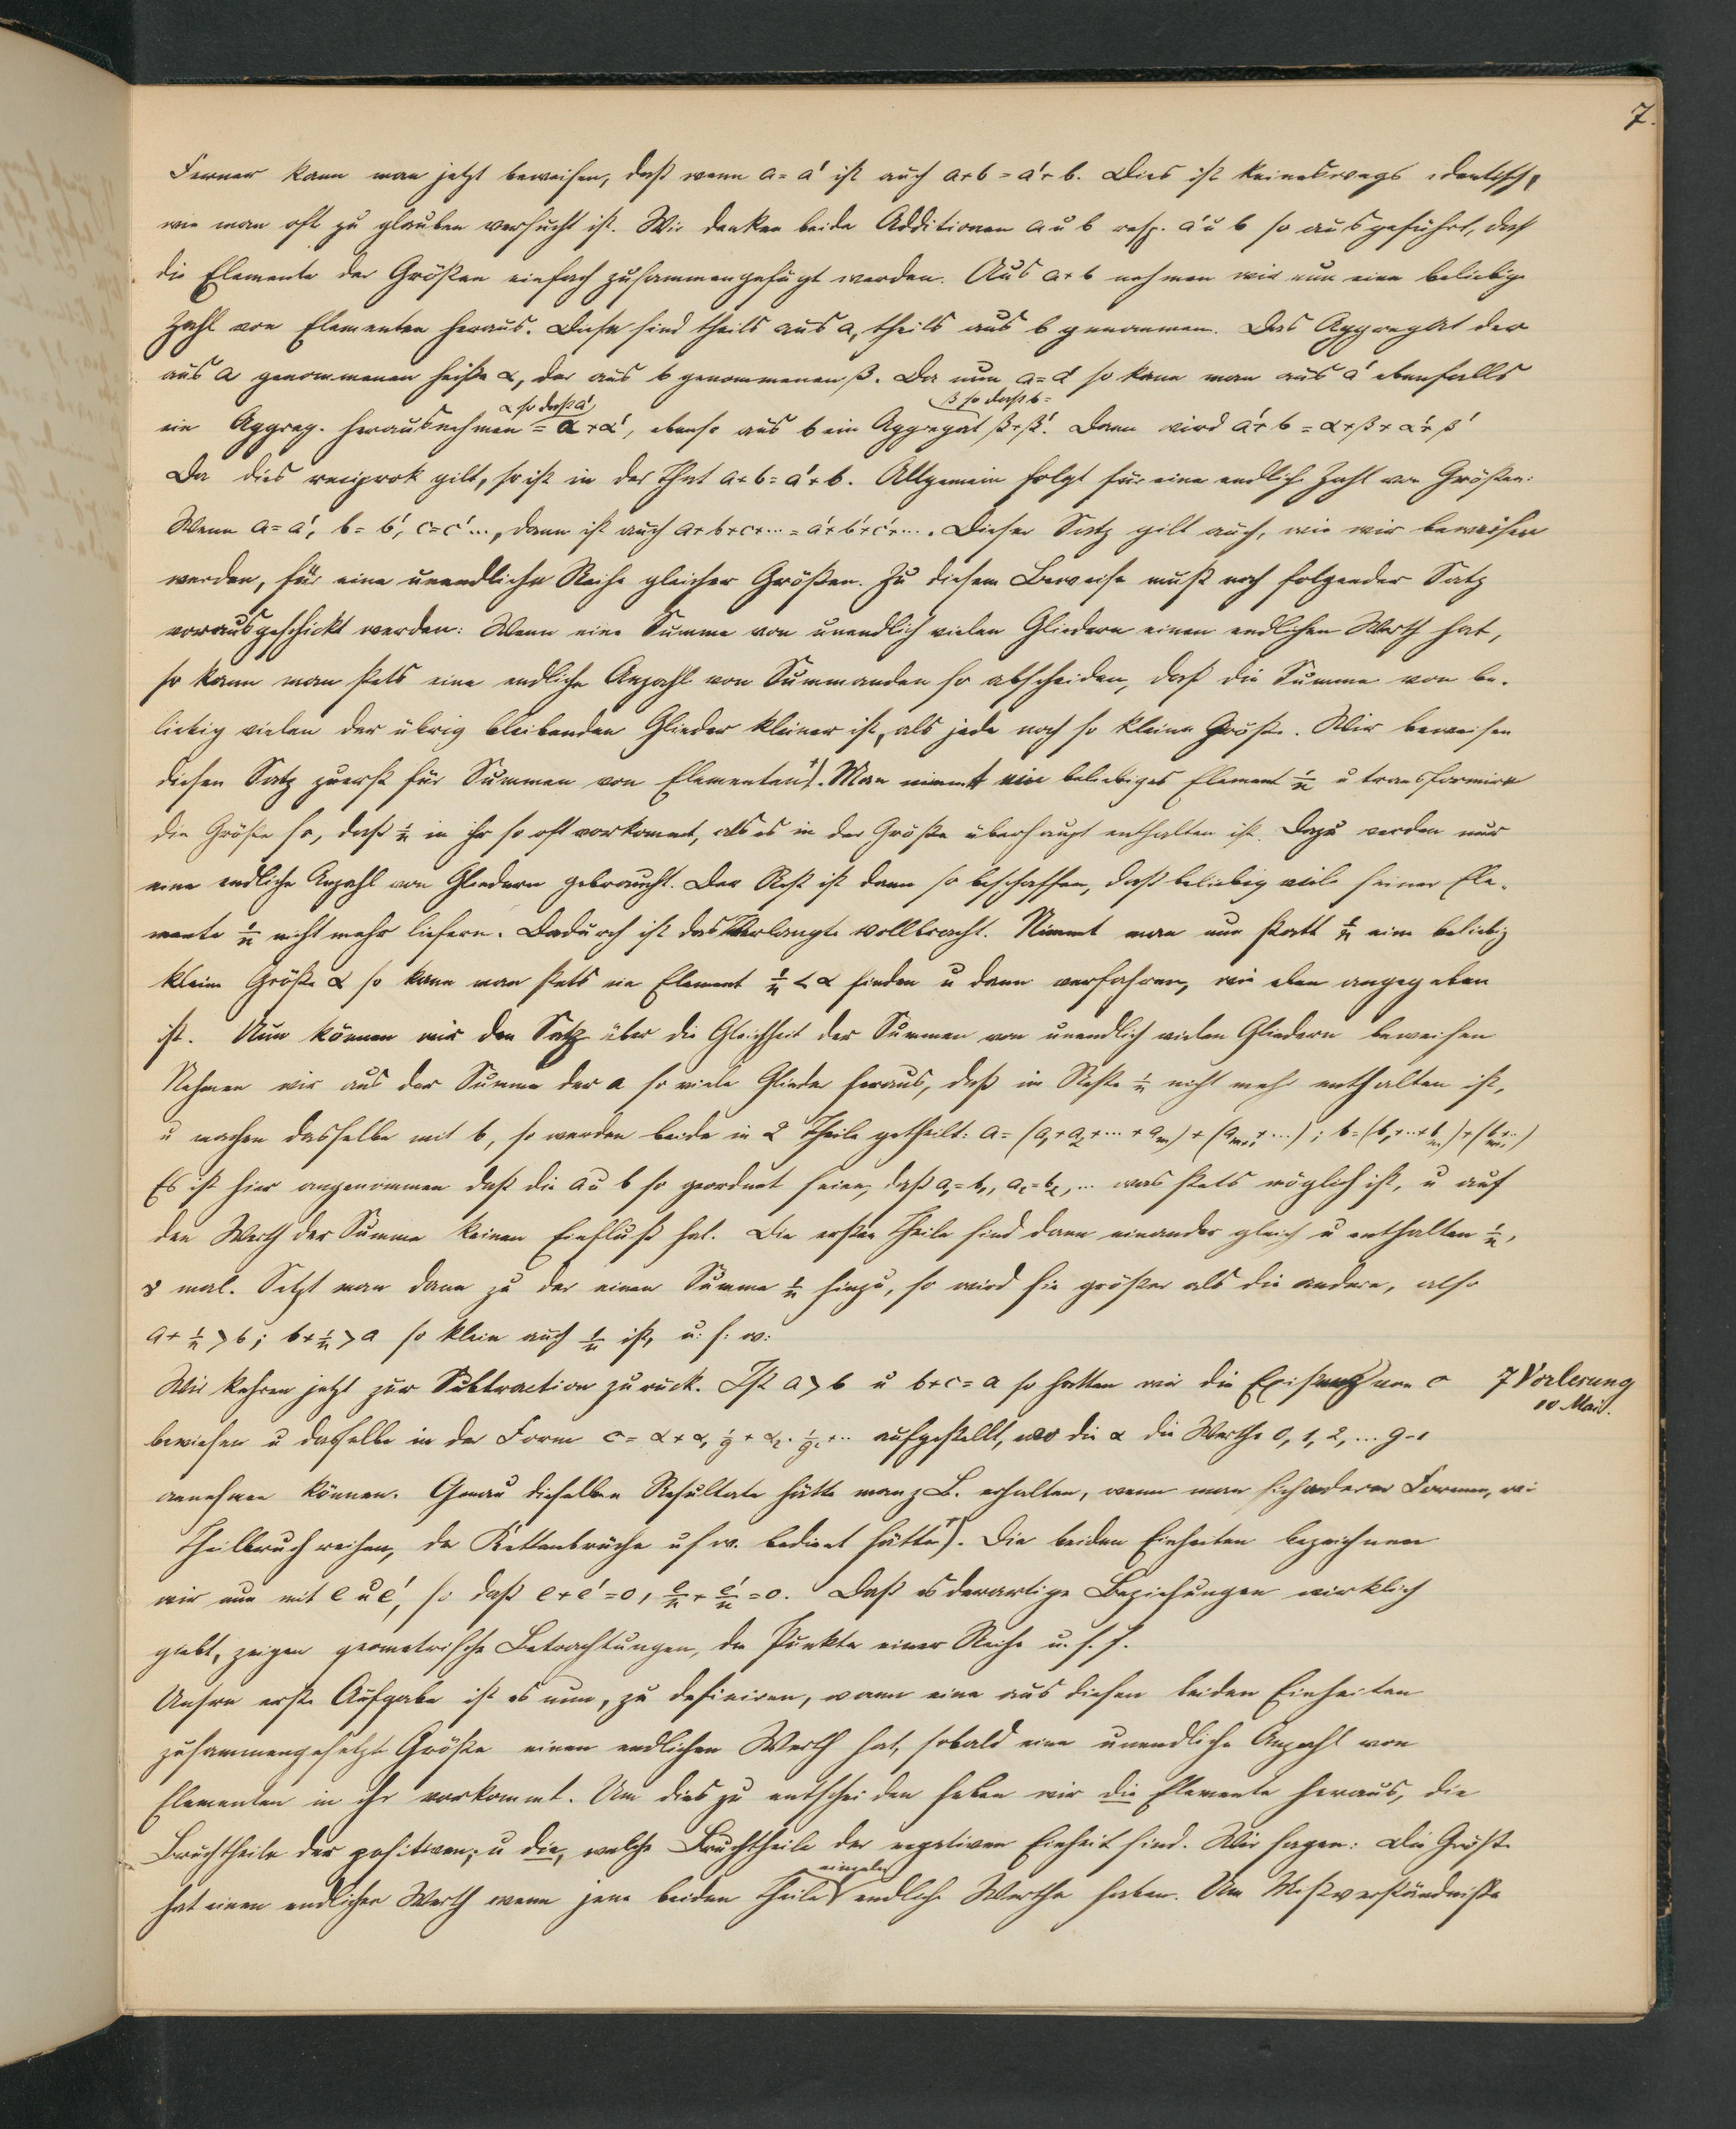 7.
Ferner kann man jetzt beweisen, daß wenn a = a' ist auch a+b = a'+b. Dies ist keineswegs identisch,
wie man oft zu glauben versucht ist. Wir denken beide Additionen a u b resp. a' u b so ausgeführt, daß
die Elemente der Größen einfach zusammengefügt werden. Aus a+b nehmen wir nun eine beliebige
Zahl von Elementen heraus. Diese sind theils aus a, theils aus b genommen. Das Aggregat der
aus a genommenen heiße α, der aus b genommenen β. Da nun a = a' so kann man aus a' ebenfalls
α so daß a' β so daß b =
ein Aggreg. herausnehmen = α+α', ebenso aus b ein Aggregat β+β'. Dann wird a'+b = α+β+α'+β'
Da dies reciprok gilt, so ist in der That a+b = a'+b. Allgemein folgt für eine endliche Zahl von Größen:
Wenn a = a', b = b', c = c' ..., dann ist auch a+b+c+... = a'+b'+c'+.... Dieser Satz gilt auch, wie wir beweisen
werden, für eine unendliche Reihe gleicher Größen. Zu diesem Beweise muß noch folgender Satz
vorausgeschickt werden: Wenn eine Summe von unendlich vielen Gliedern einen endlichen Werth hat,
so kann man stets eine endliche Anzahl von Summanden so abscheiden, daß die Summe von be-
liebig vielen der übrig bleibenden Glieder kleiner ist, als jede noch so kleine Größe. Wir beweisen
diesen Satz zuerst für Summen von Elementen +). Man nimmt ein beliebiges Element 1/n u transformire
die Größe so, daß 1/n in ihr so oft vorkommt, als es in der Größe überhaupt enthalten ist. Dazu werden nur
eine endliche Anzahl von Gliedern gebraucht. Der Rest ist dann so beschaffen, daß beliebig viele seiner Ele-
mente 1/n nicht mehr liefern. Dadurch ist das Verlangte vollbracht. Nimmt man nun statt 1/n eine beliebig
kleine Größe α so kann man stets ein Element 1/n < α finden u dann verfahren, wie eben angegeben
ist. Nun können wir den Satz über die Gleichheit der Summen von unendlich vielen Gliedern beweisen
Nehmen wir aus der Summe der a so viele Glieder heraus, daß im Reste 1/n nicht mehr enthalten ist,
u machen dasselbe mit b, so werden beide in 2 Theile getheilt: a = (a₁+a₂+...+aₘ) + (aₘ₊₁+...); b = (b₁+...+bₘ)+(bₘ₊₁...)
Es ist hier angenommen daß die a u b so geordnet seien, daß a₁=b₁, a₂=b₂, ... was stets möglich ist, u auf
den Werth der Summe keinen Einfluß hat. Die ersten Theile sind dann einander gleich u enthalten 1/n,
mal. Setzt man dann zu der einen Summe 1/n hinzu, so wird sie größer als die andere, also
a + 1/n > b; b + 1/n > a so klein auch 1/n ist, u. s. w.
Wir kehren jetzt zur Subtraction zurück. Ist a > b u b+c = a so hatten wir die Existenz von c
7 Vorlesung
10 Mai.
bewiesen u dasselbe in der Form c = α + α₁ 1/g + α₂ · 1/g² + ... aufgestellt, wo die α die Werthe 0, 1, 2, ... g-1
annehmen können. Genau dieselben Resultate hätte man z. B. erhalten, wenn man sich anderer Formen, wie
Theilbruchreihen, der Kettenbrüche usw. bedient hätte +). Die beiden Einheiten bezeichnen
wir nun mit e u e', so daß e+e' = 0, e/n + e'/n = 0. Daß es derartige Beziehungen wirklich
giebt, zeigen geometrische Betrachtungen, die Punkte einer Reihe u. s. f.
Unsere erste Aufgabe ist es nun, zu definiren, wann eine aus diesen beiden Einheiten
zusammengesetzte Größe einen endlichen Werth hat, sobald eine unendliche Anzahl von
Elementen in ihr vorkommt. Um dies zu entscheiden heben wir die Elemente heraus, die
Bruchtheile der positiven, u die, welche Bruchtheile der negativen Einheit sind. Wir sagen: Die Größe
einzeln
hat einen endlichen Werth wenn jene beiden Theile endliche Werthe haben. Um Mißverständnisse